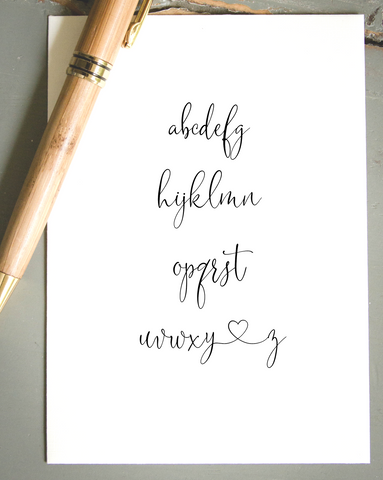 abcdefg
hijklmn
opqrst
uvwxy♡z